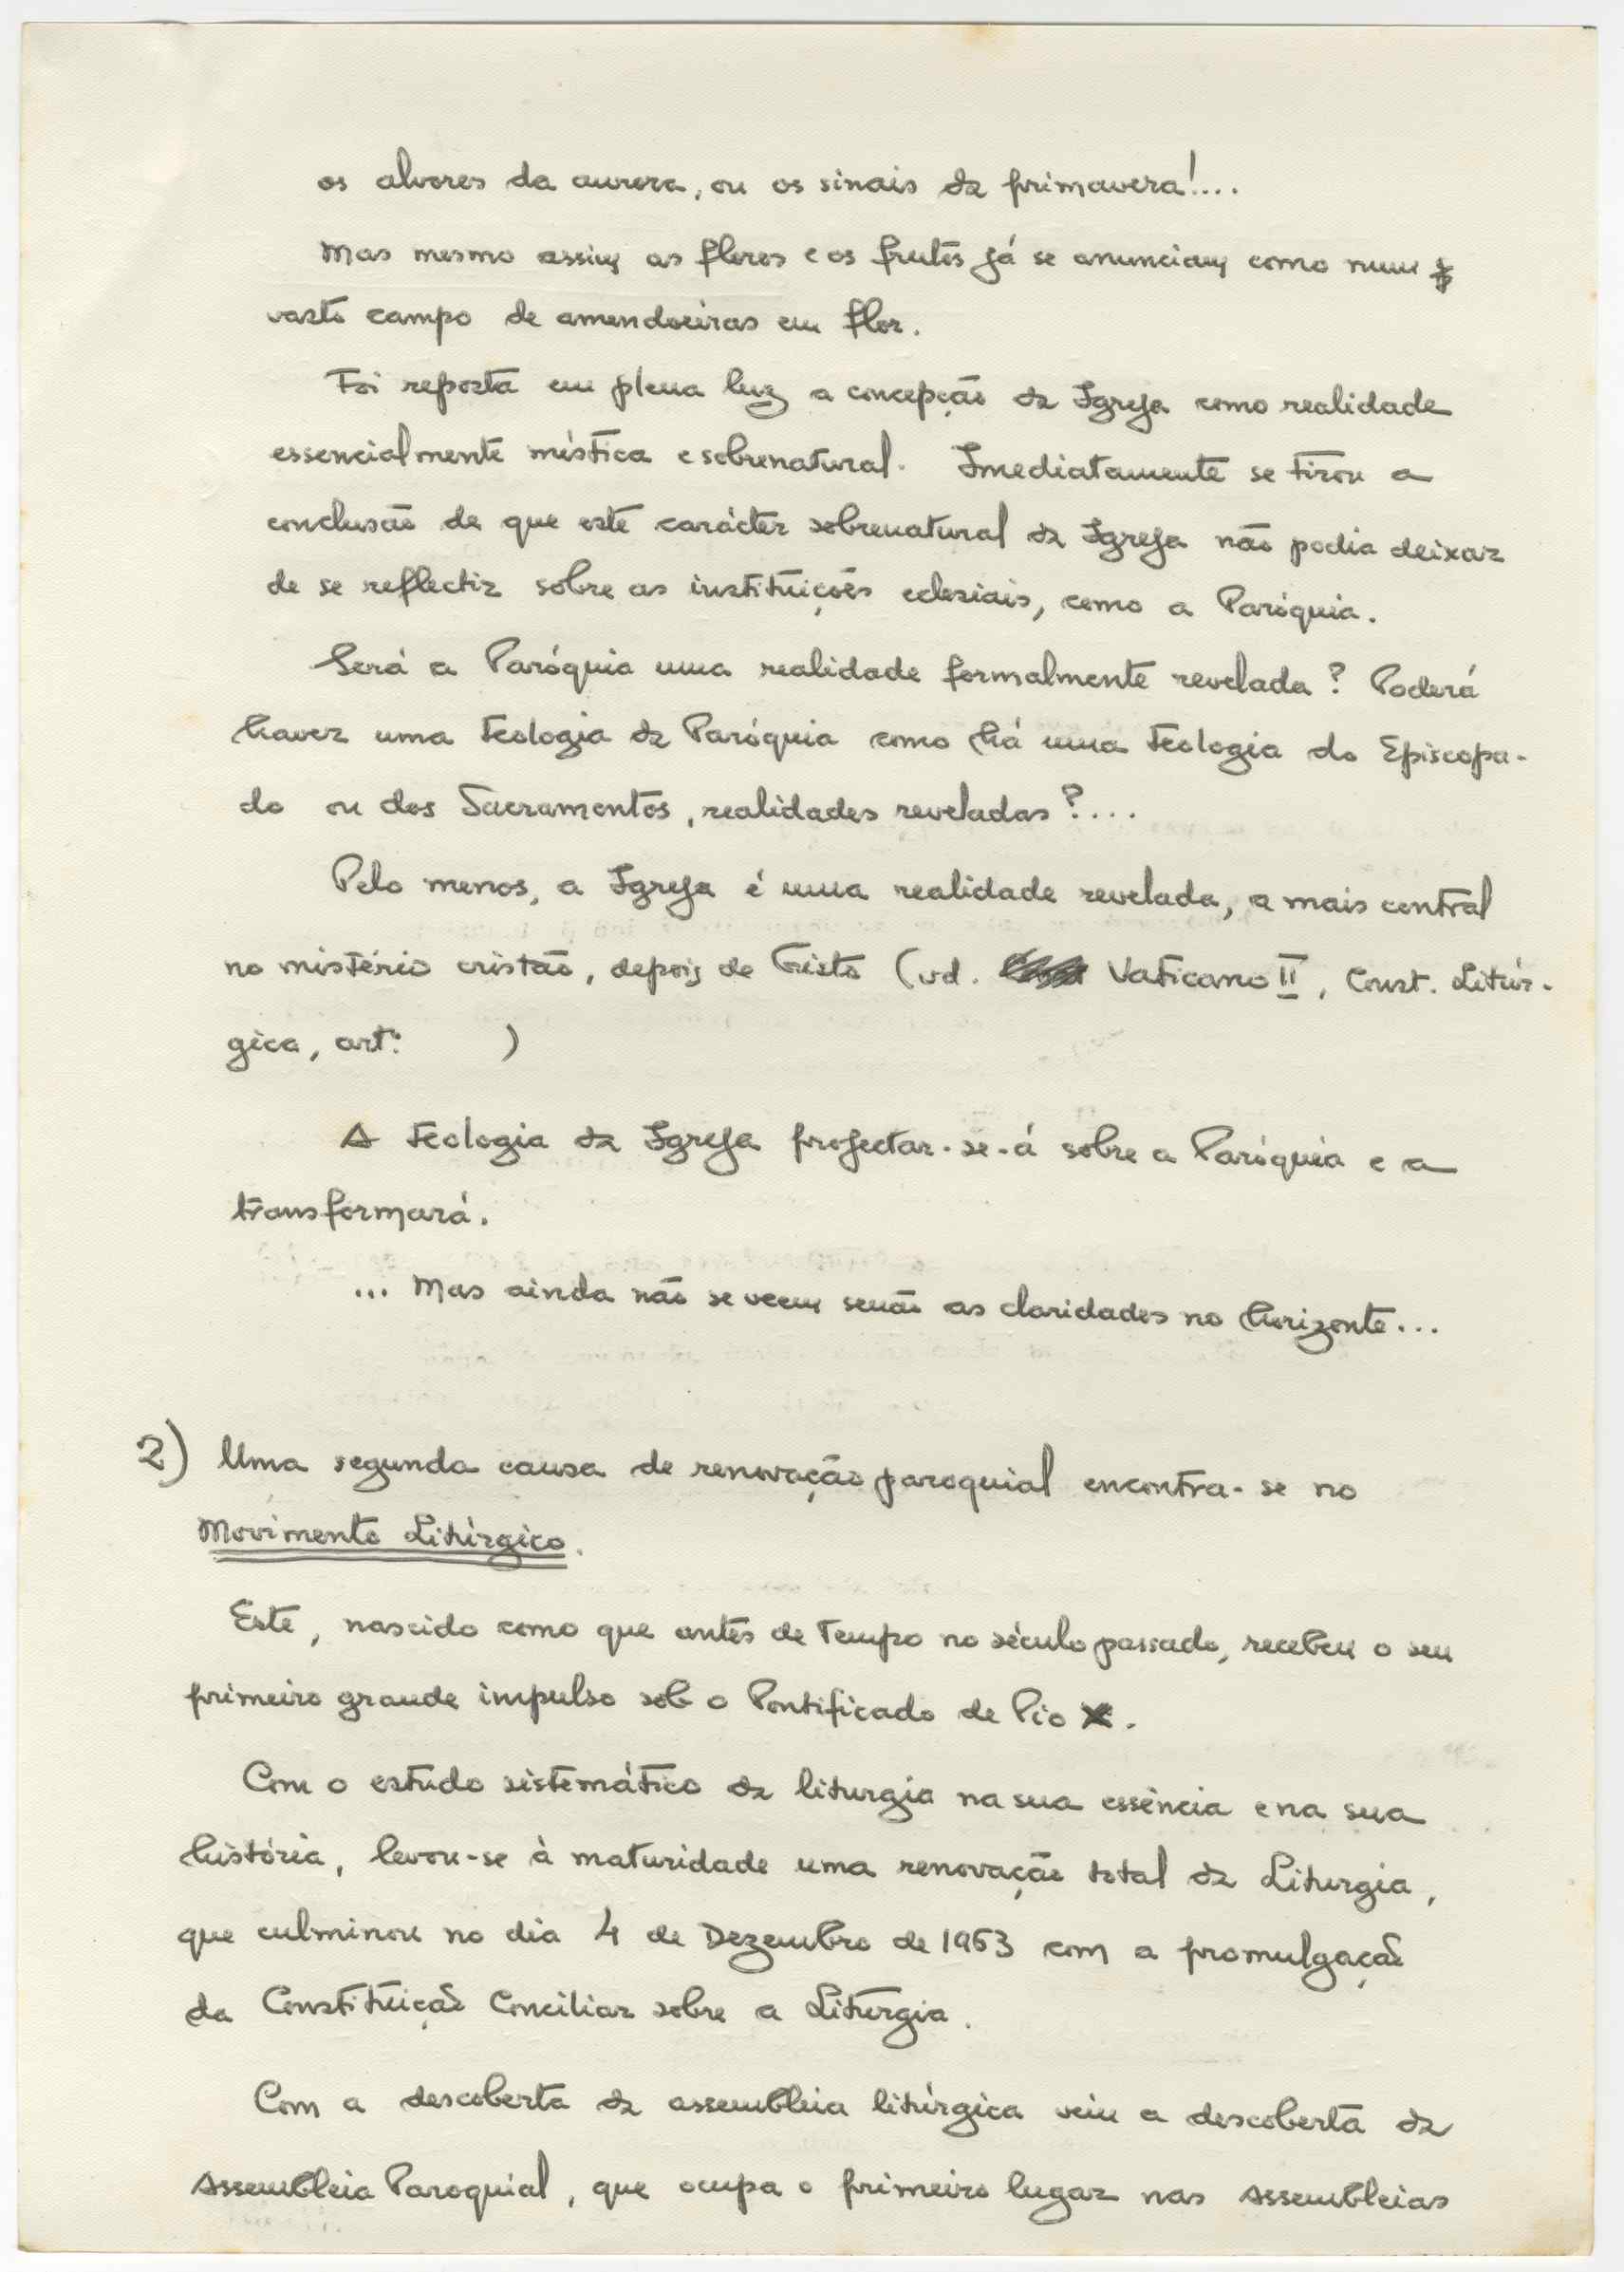 os alvores da aurora, ou os sinais da primavera!...
Mas mesmo assim as flores e os frutos já se anunciam como num
vasto campo de amendoeiras em flor.
Foi reposta em plena luz a concepção da Igreja como realidade
essencialmente mística e sobrenatural. Imediatamente se tirou a
conclusão de que este carácter sobrenatural da Igreja não podia deixar
de se reflectir sobre as instituições eclesiais, como a Paróquia.
Será a Paróquia uma realidade formalmente revelada? Poderá
haver uma teologia da Paróquia como há uma teologia do Episcopa-
do ou dos Sacramentos, realidades reveladas?....
Pelo menos, a Igreja é uma realidade revelada, a mais central
no mistério cristão, depois de Cristo (vd. Vaticano II, Const. Litúr-
gica, art: )
A teologia da Igreja projectar-se-á sobre a Paróquia e a
transformará.
... Mas ainda não se veem senão as claridades no horizonte...
2) Uma segunda causa de renovação paroquial encontra-se no
Movimento Litúrgico.
Este, nascido como que antes de tempo no século passado, recebeu o seu
primeiro grande impulso sob o Pontificado de Pio X.
Com o estudo sistemático da liturgia na sua essência e na sua
história, levou-se à maturidade uma renovação total da Liturgia,
que culminou no dia 4 de Dezembro de 1963 com a promulgação
da Constituição Conciliar sobre a Liturgia.
Com a descoberta da assembleia litúrgica veiu a descoberta da
Assembleia Paroquial, que ocupa o primeiro lugar nas Assembleias